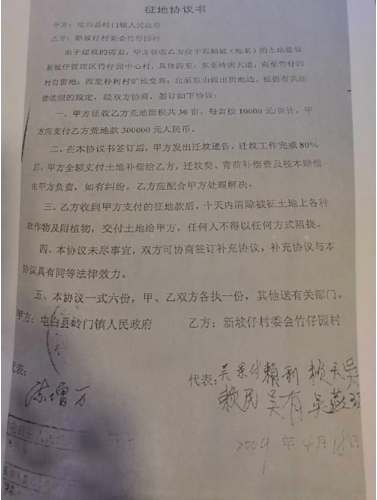 征地协议书
甲方：电白县岭门镇人民政府
乙方：新坡仔村委会竹仔园村
由于建设的需要，甲方征收乙方位于石棉岐（地名）的土地建设
新坡仔管理区竹仔园中心村，具体四至：东至岭南大道；南至竹仔园
村自留地；西至朴柯村旷地交界；北至东山派出所地边。根据有关法
律法规的规定，经双方协商，签订如下协议：
一、甲方征收乙方荒地面积共30亩，每亩按10000元/亩计，甲
方应支付乙方荒地款300000元人民币。
二、在本协议书签订后，甲方发出迁坟通告，迁坟工作完成80%
后，甲方全额支付土地补偿给乙方，迁坟费、青苗补偿费及校本赔偿
由甲方负责，如有纠纷，乙方应配合甲方处理解决。
三、乙方收到甲方支付的征地款后，十天内清除被征土地上各种
农作物及附植物，交付土地给甲方，任何人不得以任何方式阻挠。
四、本协议未尽事宜，双方可协商签订补充协议，补充协议与本
协议具有同等法律效力。
五、本协议一式六份，甲、乙双方各执一份，其他送有关部门。
甲方：电白县岭门镇人民政府 乙方：新坡仔村委会竹仔园村
代表： 代表：
2009年4月18日